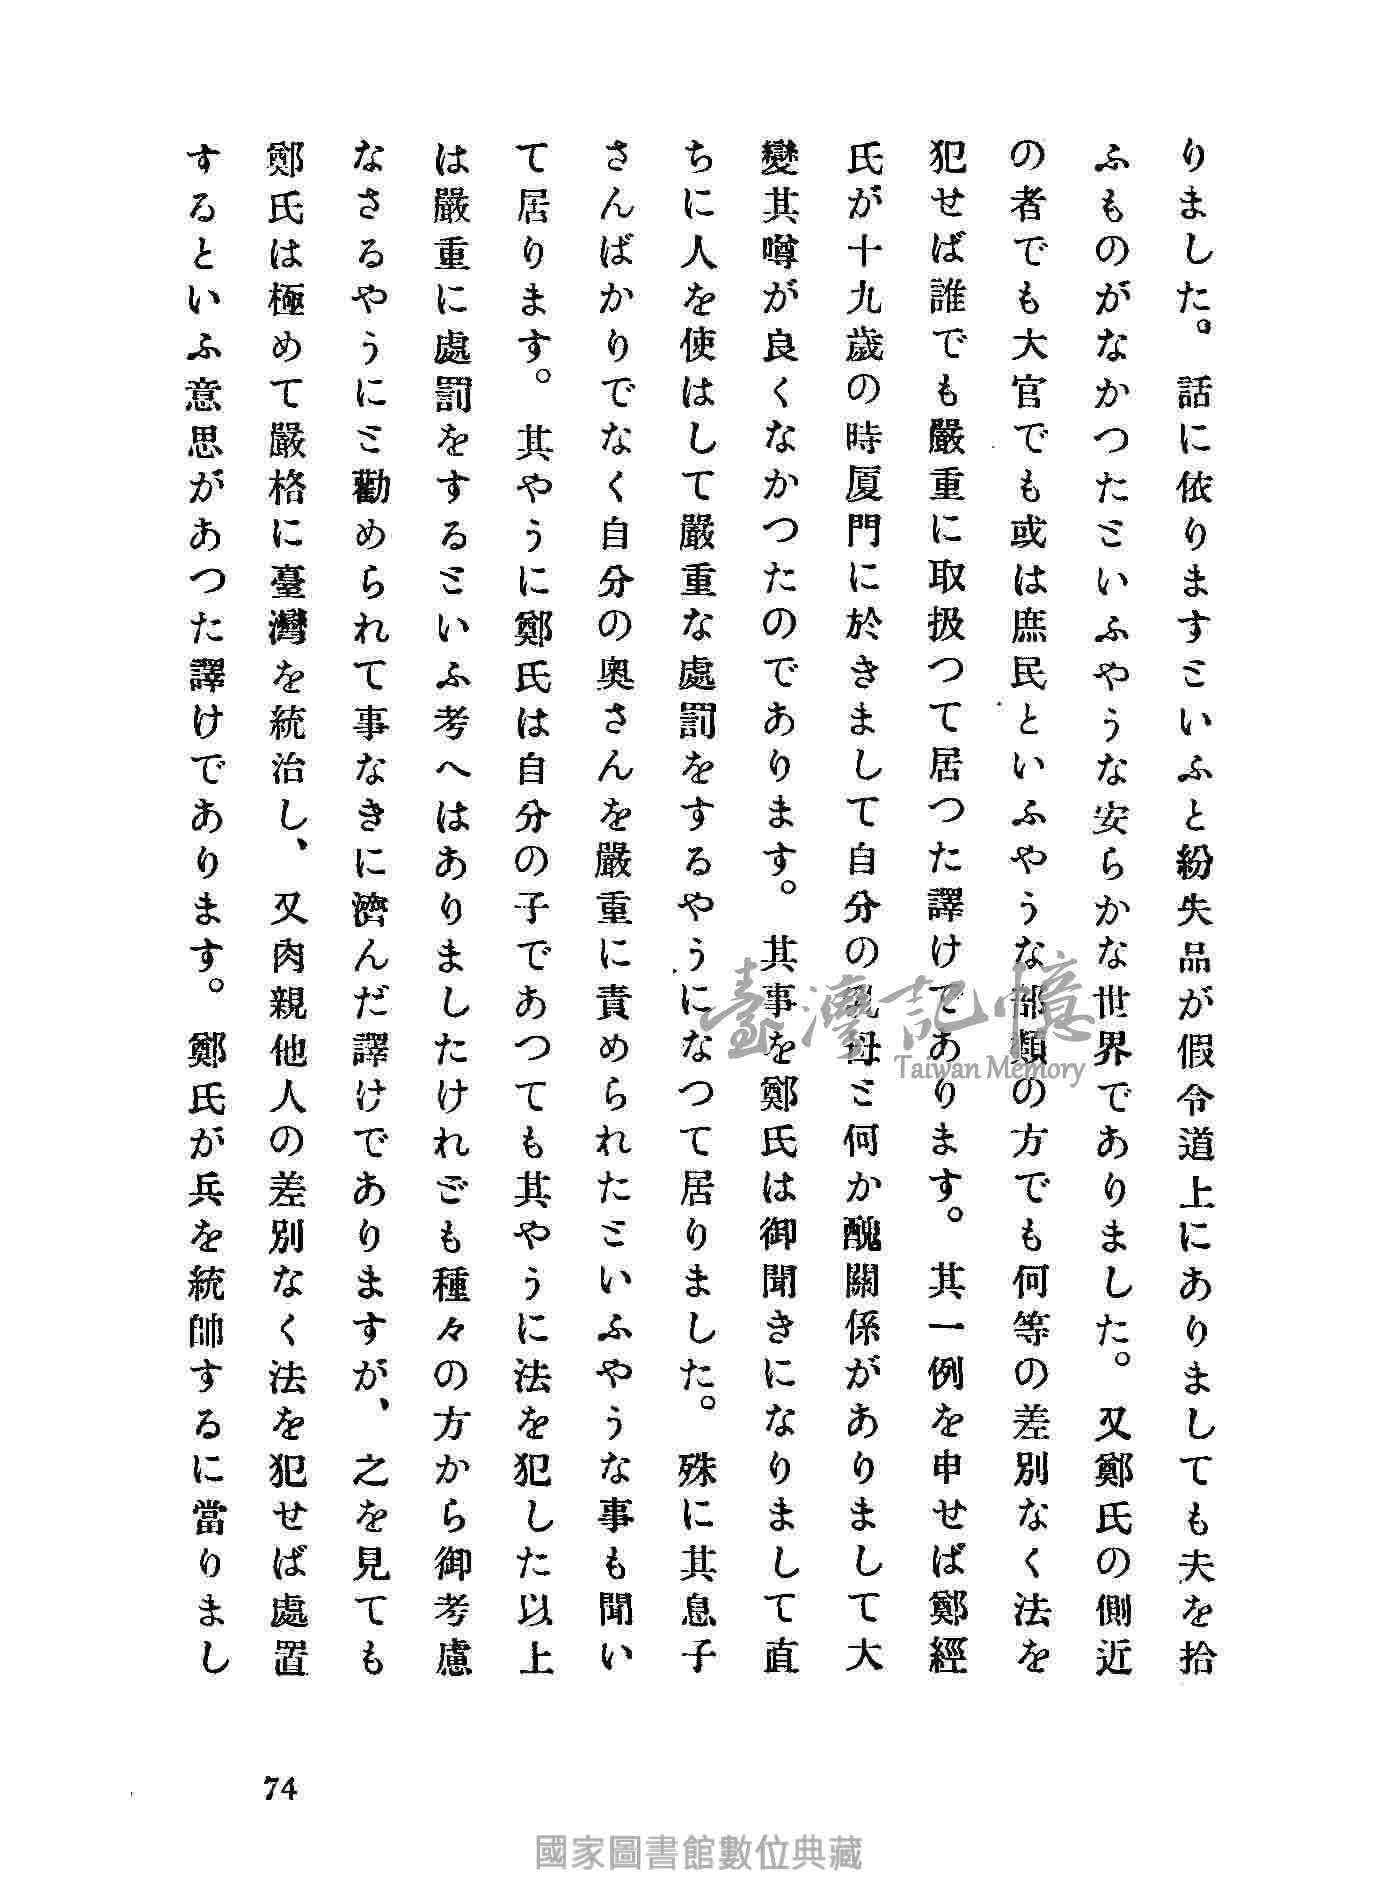 りました。話に依りますといふと紛失品が假令道上にありましても夫を拾
ふものがなかつたといふやうな安らかな世界でありました。又鄭氏の側近
の者でも大官でも或は庶民といふやうな部類の方でも何等の差別なく法を
犯せば誰でも嚴重に取扱つて居つた譯けであります。其一例を申せば鄭經
氏が十九歲の時厦門に於きまして自分の乳母と何か醜關係がありまして大
變其噂が良くなかつたのであります。其事を鄭氏は御聞きになりまして直
ちに人を使はして嚴重な處罰をするやうになつて居りました。殊に其息子
さんばかりでなく自分の奥さんを嚴重に責められたといふやうな事も聞い
て居ります。其やうに鄭氏は自分の子であつても其やうに法を犯した以上
は嚴重に處罰をするといふ考へはありましたけれども種々の方から御考慮
なさるやうにと勸められて事なきに濟んだ譯けでありますが、之を見ても
鄭氏は極めて嚴格に臺灣を統治し、又肉親他人の差別なく法を犯せば處置
するといふ意思があつた譯けであります。鄭氏が兵を統帥するに當りまし
74
臺灣記憶
Taiwan Memory
國家圖書館數位典藏